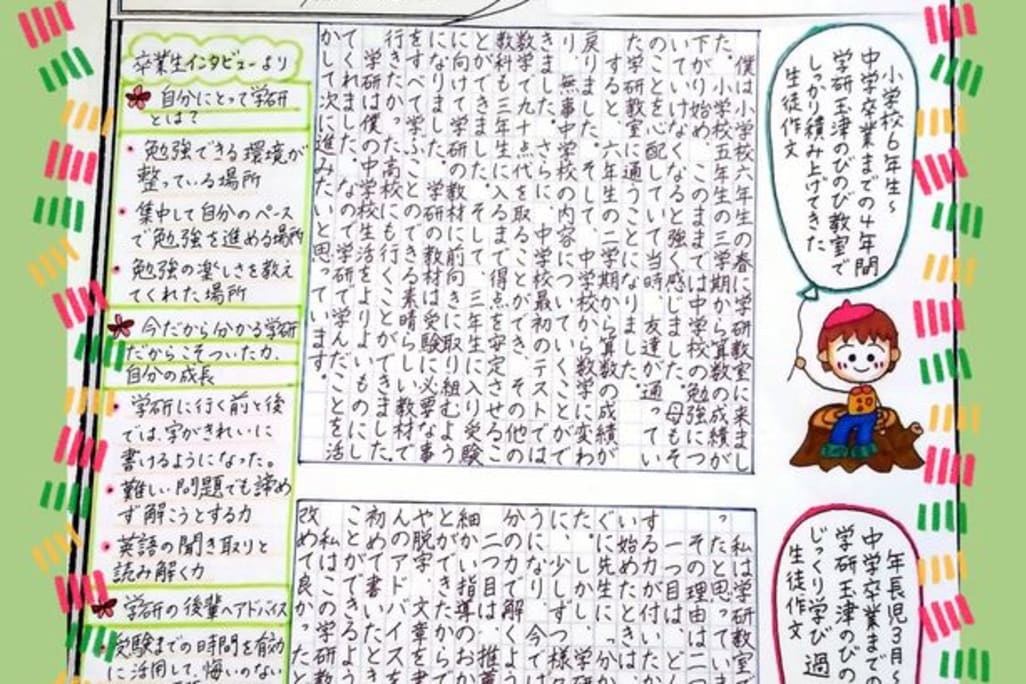 小学校6年生～
中学卒業までの4年間
学研玉津のびのび教室で
しっかり積み上げてきた
生徒作文
僕は小学校六年生の春に学研教室に来まし
た。小学校五年生の三学期から算数の成績が
下がり始め、このままでは中学校の勉強につ
いていけなくなると強く感じました。母もそ
のことを心配していて当時、友達が通ってい
た学研教室に通うことになりました。
すると、六年生の二学期から算数の成績が
戻りました。そして、中学校から数学に変わ
り、無事中学校の内容についていくことがで
きました。さらに、中学校最初のテストでは
数学で九十点代を取ることができ、その他の
教科も三年生に入るまで得点を安定させるこ
とができました。そして、三年生に入り受験
に向けて学研の教材に前向きに取り組むよう
になりました。学研の教材は受験に必要な事
をすべて学ぶことのできる素晴らしい教材で
行きたかった高校にも行くことができました。
学研は僕の中学校生活をよりよいものにし
てくれました。なので学研で学んだことを活
かして次に進みたいと思っています。
卒業生インタビューより
自分にとって学研
とは？
・勉強できる環境が
整っている場所
・集中して自分のペース
で勉強を進める場所
・勉強の楽しさを教え
てくれた場所
今だから分かる学研
だからこそついた力、
自分の成長
・学研に行く前と後
では、字がきれいに
書けるようになった。
・難しい問題でも諦め
ず解こうとする力
・英語の聞き取りと
読み解く力
学研の後輩へアドバイス
受験までの日時間を有効
に活用して、悔いのない
年長児3月～
中学卒業までの
学研玉津のびの
じっくり学び過
生徒作文
私は学研教室で
ったと思っていま
その理由は二つ
一つ目は、どん
する力が付いたか
い始めたときは、
ぐに先生に「分か
た。しかし、学研
に、少しずつ様々
うになり、今では
分の力で解くよう
二つ目は、推薦
細かい指導のおか
とができたから
や脱字、文章を書
んのアドバイスを
初めて書いたとき
ことができるよう
私はこの学研教
改めて良かったと